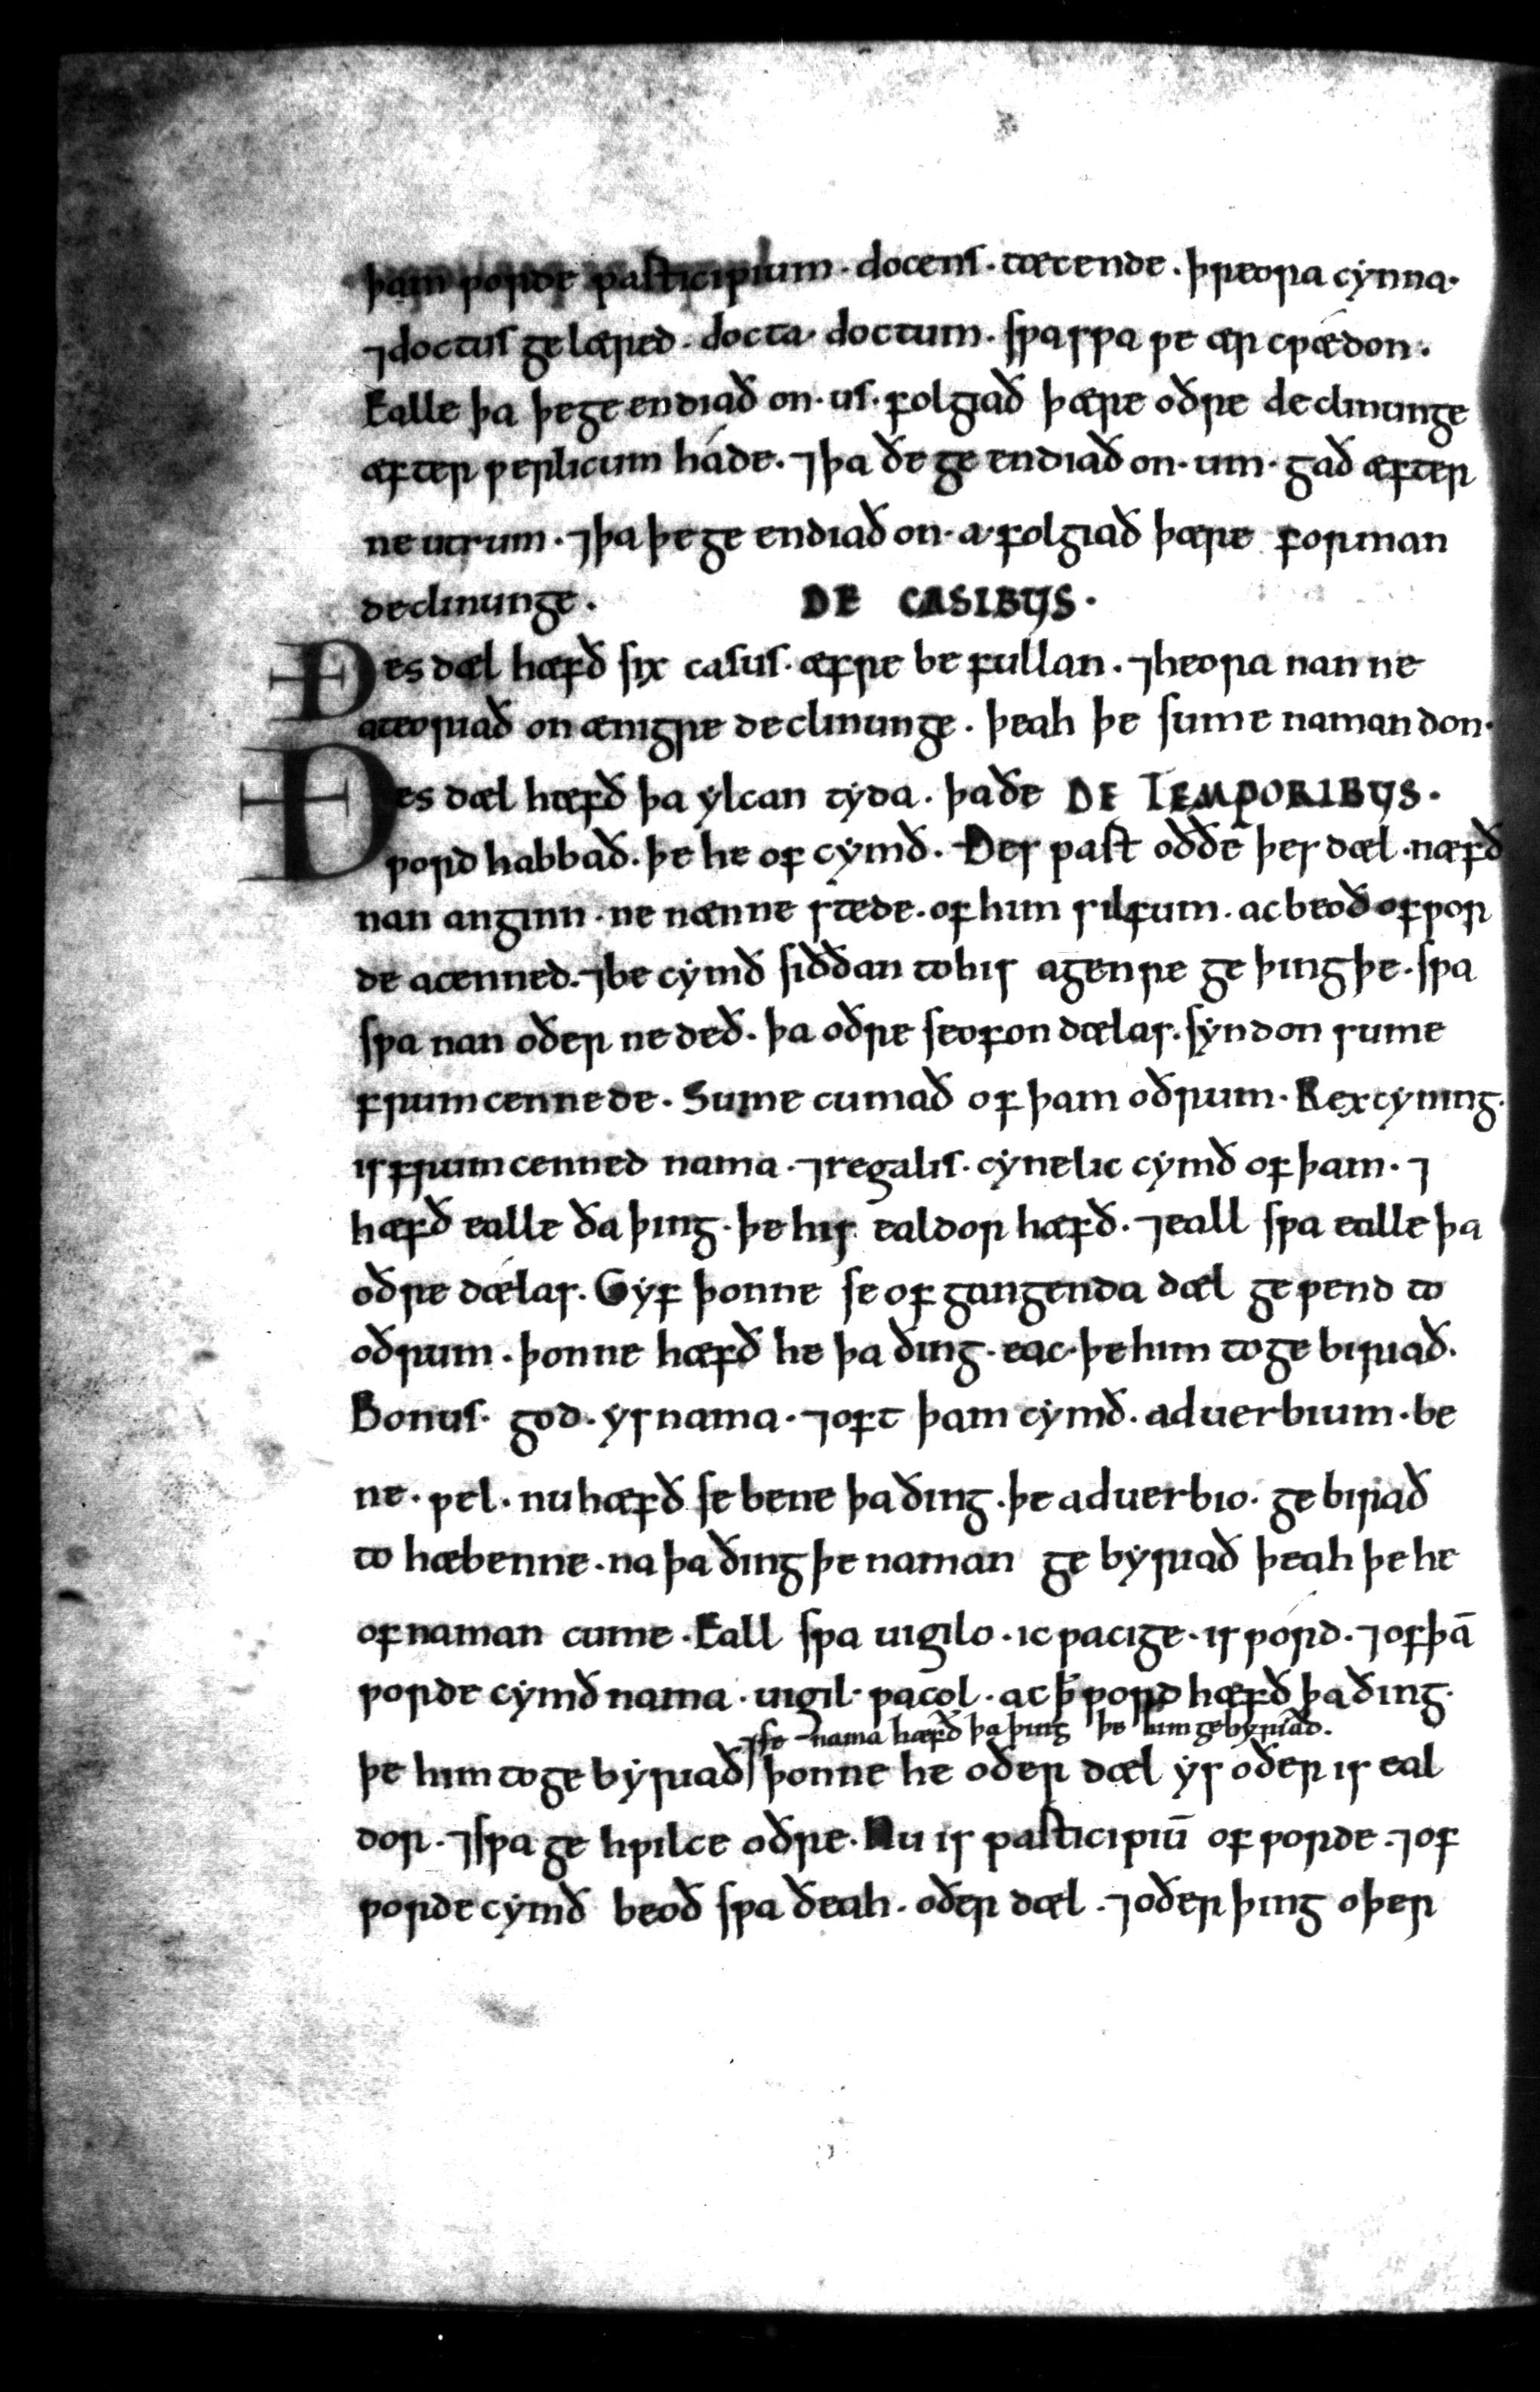 þam ƿorde participium · docens · tæcende · þreora cynna ·
⁊ doctus gelæred · docta · doctum · sƿa sƿa ƿe ær cƿædon ·
Ealle þa þe geendiað on · us · folgiað þære oðre declinunge
æfter ƿerlicum háde · ⁊ þa ðe ge endiað on · um · gað æfter
neutrum · ⁊ þa þe ge endiað on · a · folgiað þære forman
declinunge . DE CASIBUS ·
Ðes dæl hæfð six casus · æfre be fullan · ⁊ heora nan ne
ateoriað on ænigre declinunge · þeah þe sume naman don ·
Ðes dæl hæfð þa ylcan tyda · þa ðe DE TEMPORIBUS ·
ƿord habbað · þe he of cymð · Ðes part oððe þes dæl · næfð
nan anginn · ne nænne stede · of him silfum · ac beoð of ƿor
de acenned · ⁊ be cymð siððan to his agenre ge þingþe · sƿa
sƿa nan oðer ne deð · þa oðre seofon dælas · syndon sume
frumcennede · Sume cumað of þam oðrum · Rex cyning ·
is frumcenned nama · ⁊ regalis · cynelic cymð of þam · ⁊
hæfð ealle ða þing · þe his ealdor hæfð · ⁊ eall sƿa ealle þa
oðre dælas · Gyf þonne se of gangenda dæl ge ƿend to
oðrum · þonne hæfð he þa ðing · eac · þe him to ge biriað ·
Bonus · god · ys nama · ⁊ oft þam cymð · aduerbium · be
ne · ƿel · nu hæfð se bene þa ðing · þe aduerbio · ge biriað
to hæbenne · na þa ðing þe naman ge byriað þeah þe he
of naman cume · Eall sƿa uigilo · ic ƿacige · is ƿórd · ⁊ of þā
ƿorde cymð nama · uigil · ƿacol · ac ꝥ ƿord hæfð þa ðing ·
⁊ se nama hæfð þa þing þe him gebyriað .
þe him to ge byriað þonne he oðer dæl ys oðer is eal
dor · ⁊ sƿa ge hƿilce oðre · Nu is participiū of ƿorde · ⁊ of
ƿorde cymð beoð sƿa ðeah · oðer dæl · ⁊ oðer þing oþer